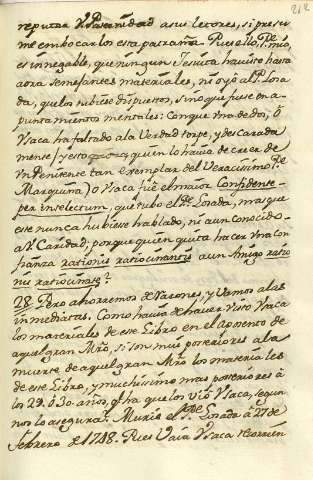 212
reputar Vr. Paternidad a sus letores, si presu-
me embocarlos esta patraña. Pues Ilo, Pe. mio,
es innegable, que ningun Jesuita ha visto hasta
aora semejantes materiales, ni oyó al P. Losa-
da, que los tubiese dispuestos, sino que fuese en a-
puntamientos mentales: Conque una de dos, ó
Ysaca ha faltado a la Verdad torpe, y descarada
mente (y esto quien lo havia de creer de
un Penitente tan exemplar del Veracisimo Pe.
Marquina) o Ysaca fué el maior Confidente
per intelectum, que tubo el Pe. Losada, mas que
este nunca hubiese hablado, ni aun conocido
a su Caridad; porque quien quita hacer una con
fianza rationis ratiocinantis a un Amigo ratio
nis ratiocinatæ?
28. Pero ahorremos de razones, y vamos a las
inmediatas. Como havia de haver visto Ysaca
los materiales de este Libro en el Aposento de
aquel gran Mro, si son mui posteriores a la
muerte de aquel gran Mro los materiales
de este Libro, y muchisimo mas posteriores á
los 29. ó 30. años, qe. ha que los vió Ysaca, segun
nos lo asegura? Murió el Pe. Losada á 27 de
febrero de 1748. Pues vaia Ysaca